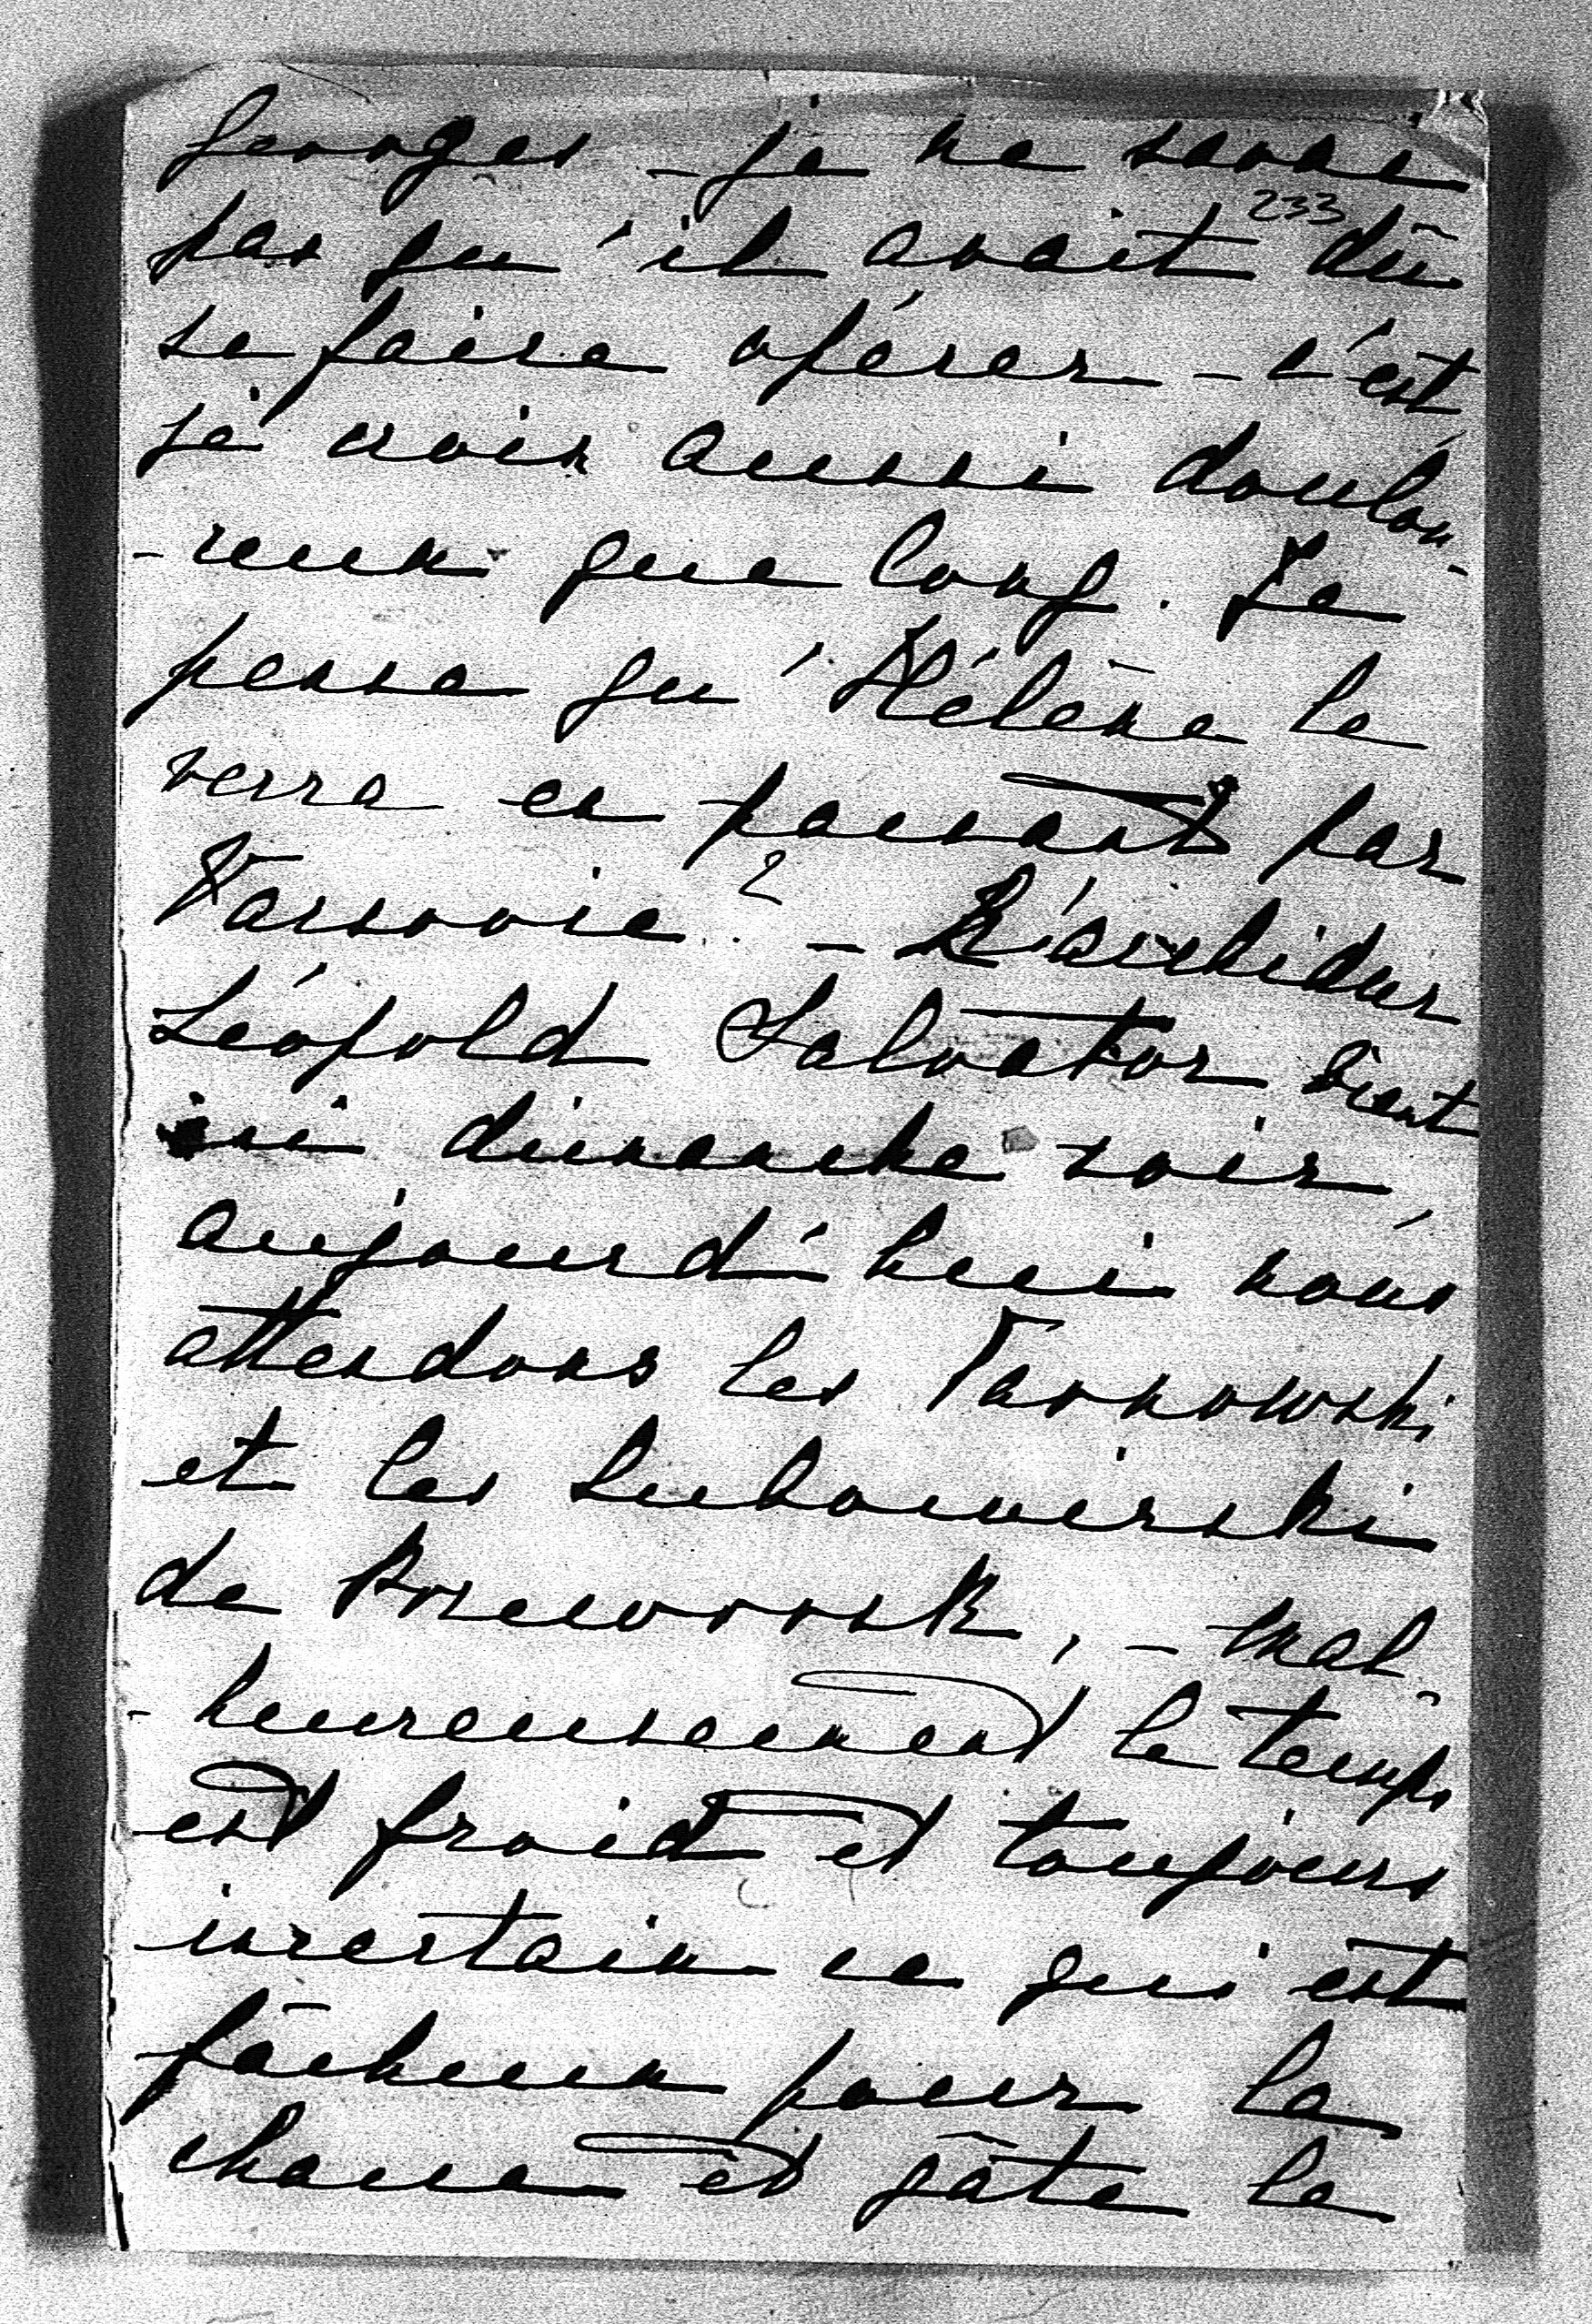 Georges – je ne savais
233
pas qu'il avait dû
se faire opérer – c'est
je crois aussi doulou-
-reux que long. Je
pense qu'Hélène le
verra en passant par
Varsovie ? – L'archiduc
Léopold Salvator vient
ici dimanche soir,
aujourd'hui nous
attendons les Tarnowski
et les Lubomirski
de Przeworsk, – mal-
-heureusement le temps
est froid et toujours
incertain ce qui est
fâcheux pour la
chasse et gâte le